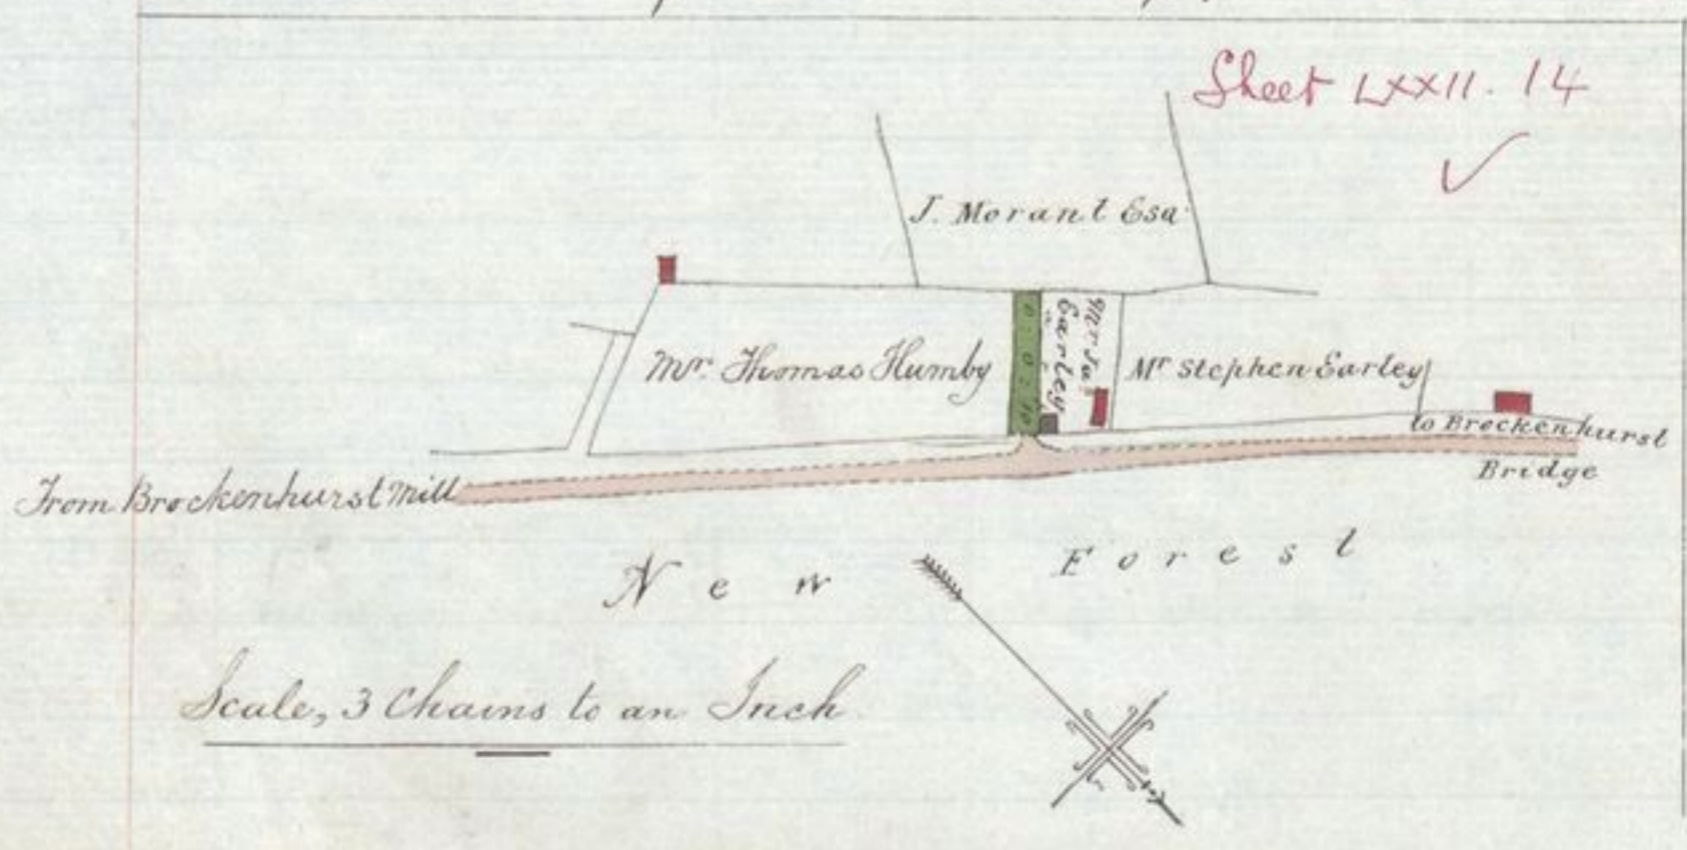 Sheet LXXII. 14
J. Morant Esq
Mr. Thomas Humby
Earley
Mr Stephen Earley
to Brockenhurst
Bridge
From Brockenhurst Mill
New Forest
Scale, 3 Chains to an Inch